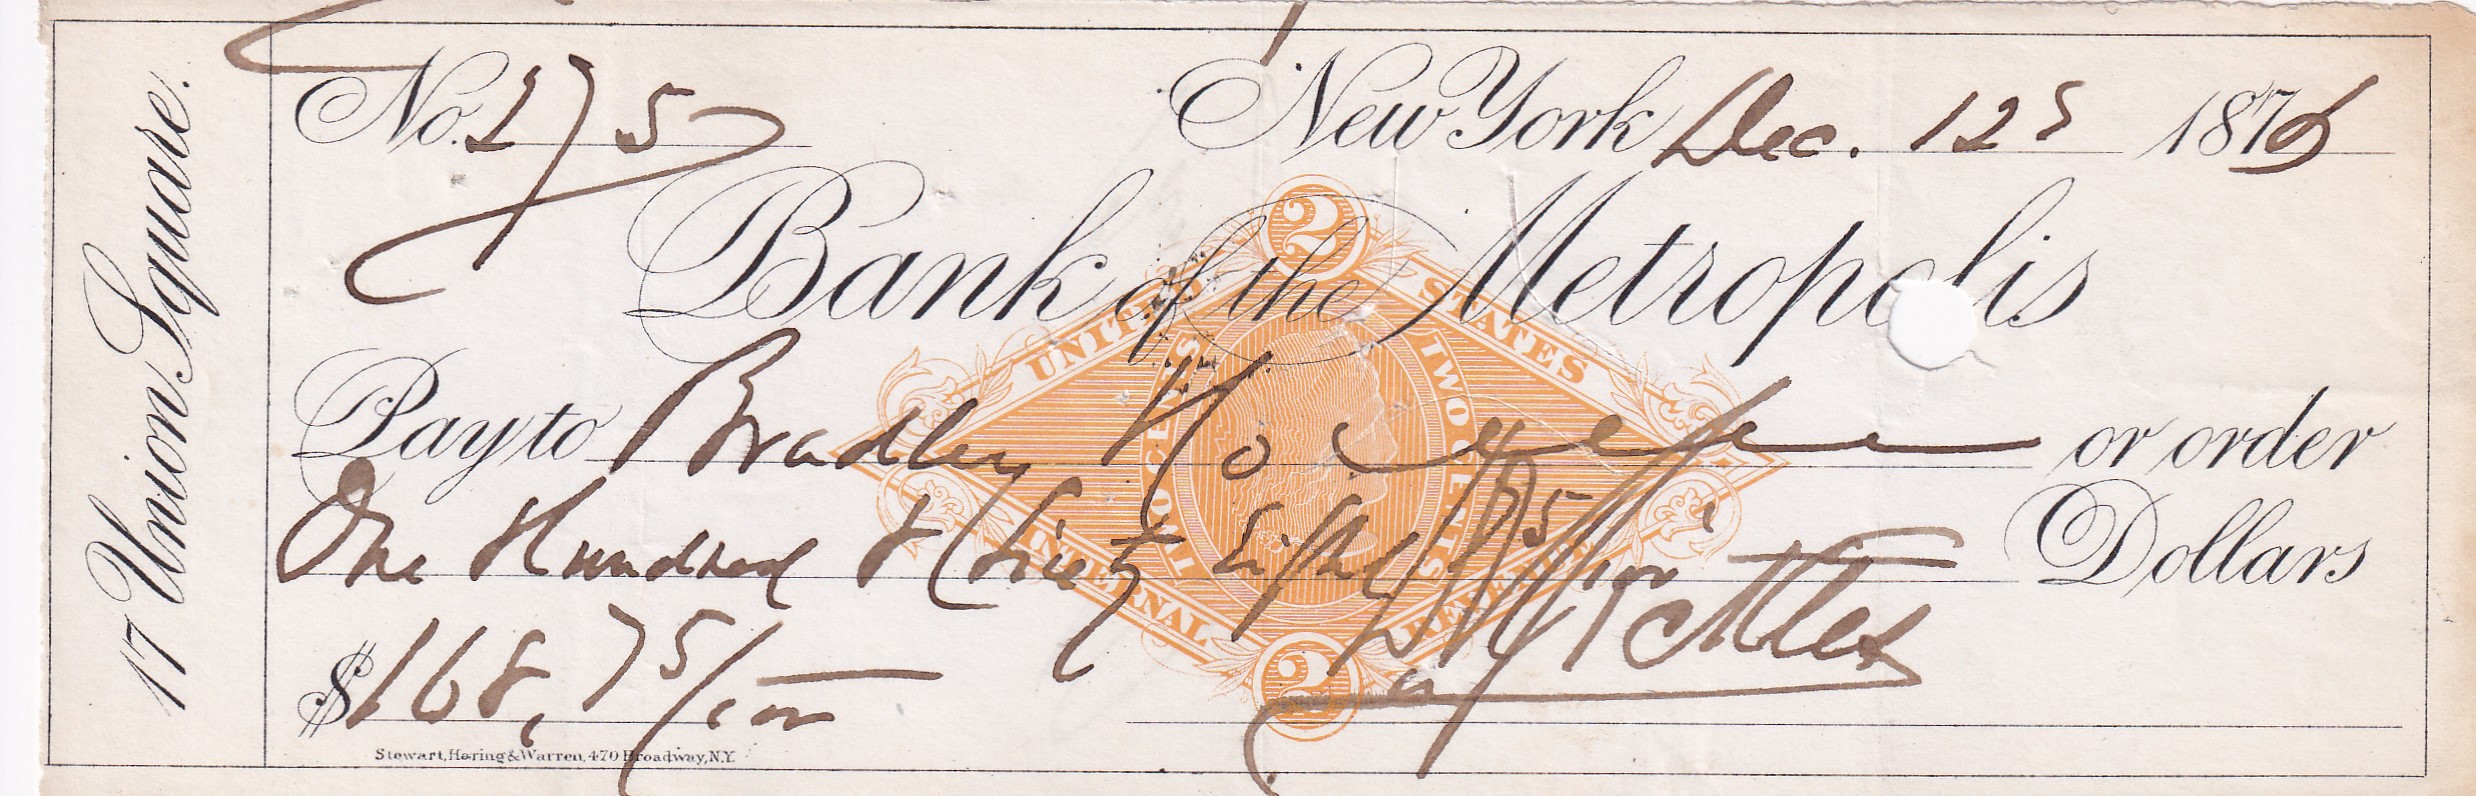 17 Union Square.
No. 275
New York Dec. 12 1876
Bank of the Metropolis
2
UNITED STATES
TWO CENTS TWO CENTS
INTERNAL REVENUE
2
Pay to Bradley or order
One Hundred & Sixty Eight 75/100 Dollars
$168,75/100
Stewart, Haring & Warren, 470 Broadway, N.Y.